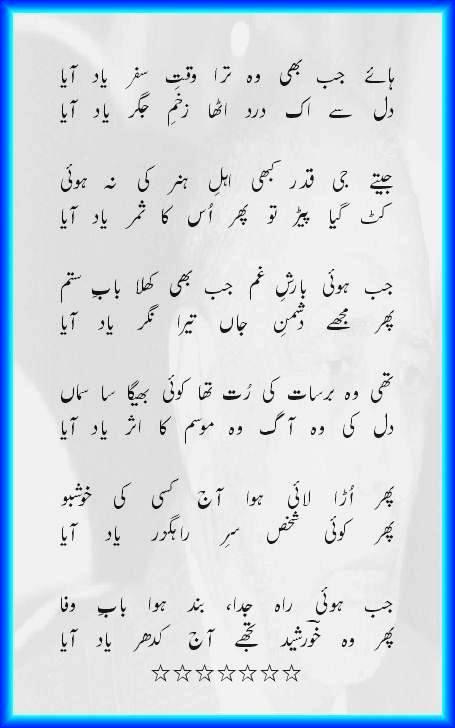 ہائے جب بھی وہ ترا وقتِ سفر یاد آیا
دل سے اک درد اٹھا زخمِ جگر یاد آیا
جیتے جی قدر کبھی اہلِ ہنر کی نہ ہوئی
کٹ گیا پیڑ تو پھر اُس کا ثمر یاد آیا
جب ہوئی بارشِ غم جب بھی کھلا بابِ ستم
پھر مجھے دشمنِ جاں تیرا نگر یاد آیا
تھی وہ برسات کی رُت تھا کوئی بھیگا سا سماں
دل کی وہ آگ وہ موسم کا اثر یاد آیا
پھر اُڑا لائی ہوا آج کسی کی خوشبو
پھر کوئی شخص سرِ راہگذر یاد آیا
جب ہوئی راہ جدا، بند ہوا بابِ وفا
پھر وہ خورشید تجھے آج کدھر یاد آیا
☆☆☆☆☆☆☆